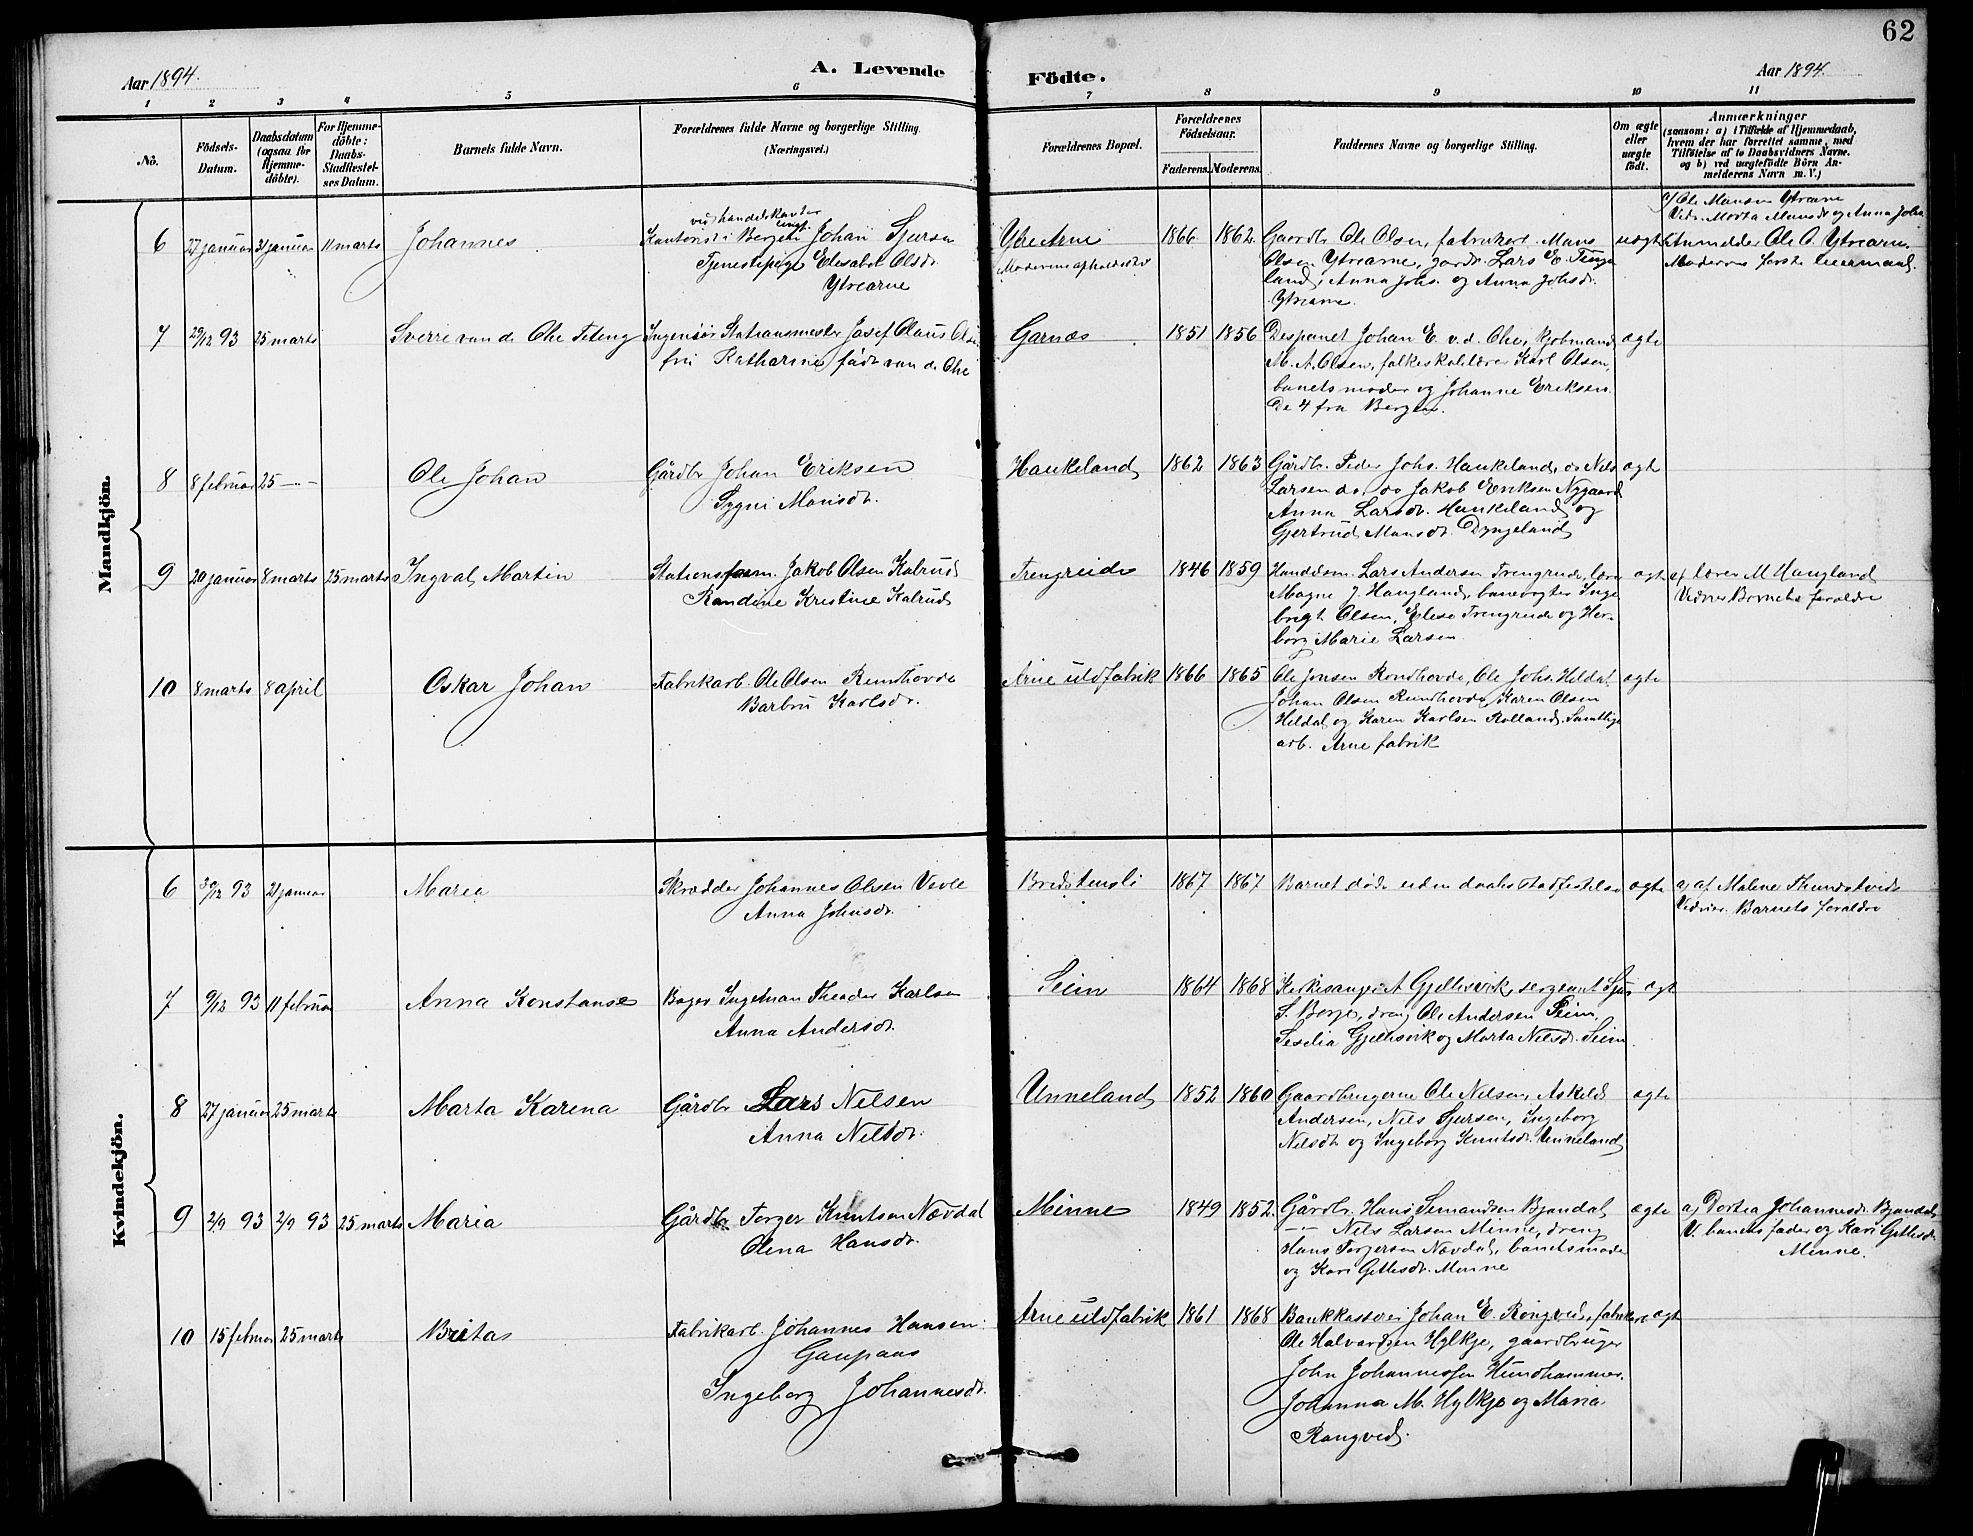 62
Aar 1894.
A. Levende Födte.
Aar 1894.
1 2 3 4 5 6 7 8 9 10 11
No.
Födsels-Datum.
Daabsdatum (ogsaa for Hjemme-döbte).
For Hjemme-döbte: Daabs-Stadfæstel-ses Datum.
Barnets fulde Navn.
Forældrenes fulde Navne og borgerlige Stilling.
(Næringsvei.)
Forældrenes Bopæl.
Forældrenes Födselsaar.
Faderens. Moderens.
Faddernes Navne og borgerlige Stilling.
Om ægte eller uægte födt.
Anmærkninger
(saasom: a) i Tilfælde af Hjemmedaab,
hvem der har forrettet samme, med
Tilföielse af to Daabsvidners Navne.
og b) ved uægtefödte Börn An-
melderens Navn m. V.)
Mandkjön.
6 27 januar 31 januar 11 marts Johannes
ved handelskontor
Kontorist i Bergen Johan Sjursen
Tjenestepige Elisabet Olsdr.
Ytrearne
Ytre Arne
Moderens opholdssted
1866 1862
Gaardbr. Ole Olsen, fabrikarb. Mons
Olsen Ytrearne, gardbr. Lars E. Tenge
land, Anna Johs. og Anna Johsdr.
Ytrearne.
uægte
a/ Ole Monsen Ytrearne
Vidn. Marta Monsdr og Anna Johs
Anmelder Ole O. Ytrearne.
Moderens første leiermaal.
7 29/12 93 25 marts Sverre van de Ohe Teteng
Ingeniør Stationsmester Josef Claus Olsen
fru Katharine født van de Ohe
Garnæs 1851 1856
Johan E. v. d. Ohe, kjøbmand
M. A. Olsen, folkeskolelærer Karl Olsen,
banets moder og Johanne Eriksen.
De 4 fra Bergen.
ægte
8 8 februar 25 —„— Ole Johan
Gårdbr Johan Eriksen
Sygni Monsdr.
Haukeland 1862 1863
Gårdbr. Peder Johs. Haukeland, do Nils
Larsen do, do Jakob Eriksen Nygaard
Anna Larsdr. Haukeland og
Gjertrud Monsdr. Dyngeland
ægte
9 20 januar 8 marts 25 marts Ingval Martin
Stationsform. Jakob Olsen Kalrud
Randine Kristine Kalrud
Trengreide 1846 1859
Handelsm. Lars Andersen Trengreide, lærer
Magne J. Haugland, banevogter Inge
brigt Olsen, Elise Trengreide og Her-
borg Marie Larsen
ægte
a/ lærer M Haugland
Vidner Barnets forældre
10 8 marts 8 april Oskar Johan
Fabrikarb. Ole Olsen Rundhovde
Barbru Karlsdr.
Arne uldfabrik 1866 1865
Ole Jonsen Rondhovde, Ole Johs. Heldal
Johan Olsen Rundhovde, Karen Olsen
Heldal og Karen Karlsen Rolland. Samtlige
arb. Arne fabrik
ægte
Kvindekjön.
6 30/12 93 21 januar Maria
Skrædder Johannes Olsen Vevle
Anna Johnsdr.
Bredstensli 1867 1867
Barnet døde uden daabs stadfestelse
ægte
a/ af Malene Thunestveit
Vidner. Barnets forældre
7 9/12 93 11 februar Anna Konstanse
Bager Ingelman Theodor Karlsen
Anna Andersdr.
Seim 1864 1868
Kirkesanger A Gjellesvik, sergeant Sjur
S. Borge, dreng Ole Andersen Seim,
Sesilia Gjellesvik og Marta Nilsdr. Seim
ægte
8 27 januar 25 marts Marta Karina
Gårdbr Lars Nilsen
Anna Nilsdr.
Unneland 1852 1860
Gaardbrugerne Ole Nilsen, Askeld
Andersen, Nils Sjursen, Ingeborg
Nilsdr og Ingeborg Knutsdr. Unneland
ægte
9 2/9 93 2/9 93 25 marts Maria
Gårdbr Torger Knutsen Nævdal
Olena Hansdr.
Minne 1849 1852
Gårdbr. Hans Semundsen Bjøndal
—„— Nils Larsen Minne, dreng
Hans Torgersen Nævdal, banets moder
og Kari Gitlesdr. Minne
ægte
a/ Dortea Johannesdr. Bjøndal
V. banets fader og Kari Gitlesdr
Minne.
10 15 februar 25 marts Britas
Fabrikarb. Johannes Hansen
Gaupaas
Ingeborg Johannesdr.
Arne uldfabrik 1861 1868
Bankkasserer Johan E. Rongved, fabrikarb
Ole Halvardsen Hylkje, gaardbruger
John Johannessen Hundhammer.
Johanna M. Hylkje og Maria
Rongved.
ægte